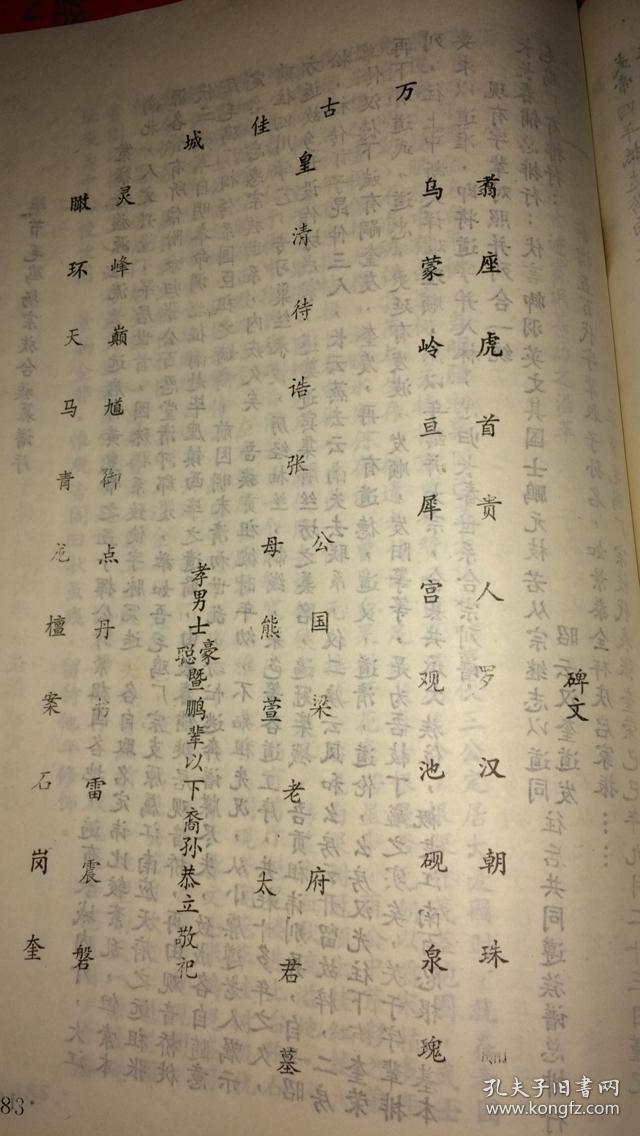 碑文
翥座虎首贵人罗汉朝珠
乌蒙岭亘犀宫观池砚泉瑰
万古佳城
皇清待诰张
公国梁
母熊萱
老
府
太
君墓
孝男士豪聪暨鹏辈以下裔孙恭立敬祀
灵峰巅馗御点丹书雷震磐
瞰环天马青龙檀案石岗奎
83·
孔夫子旧书网
www.kongfz.com